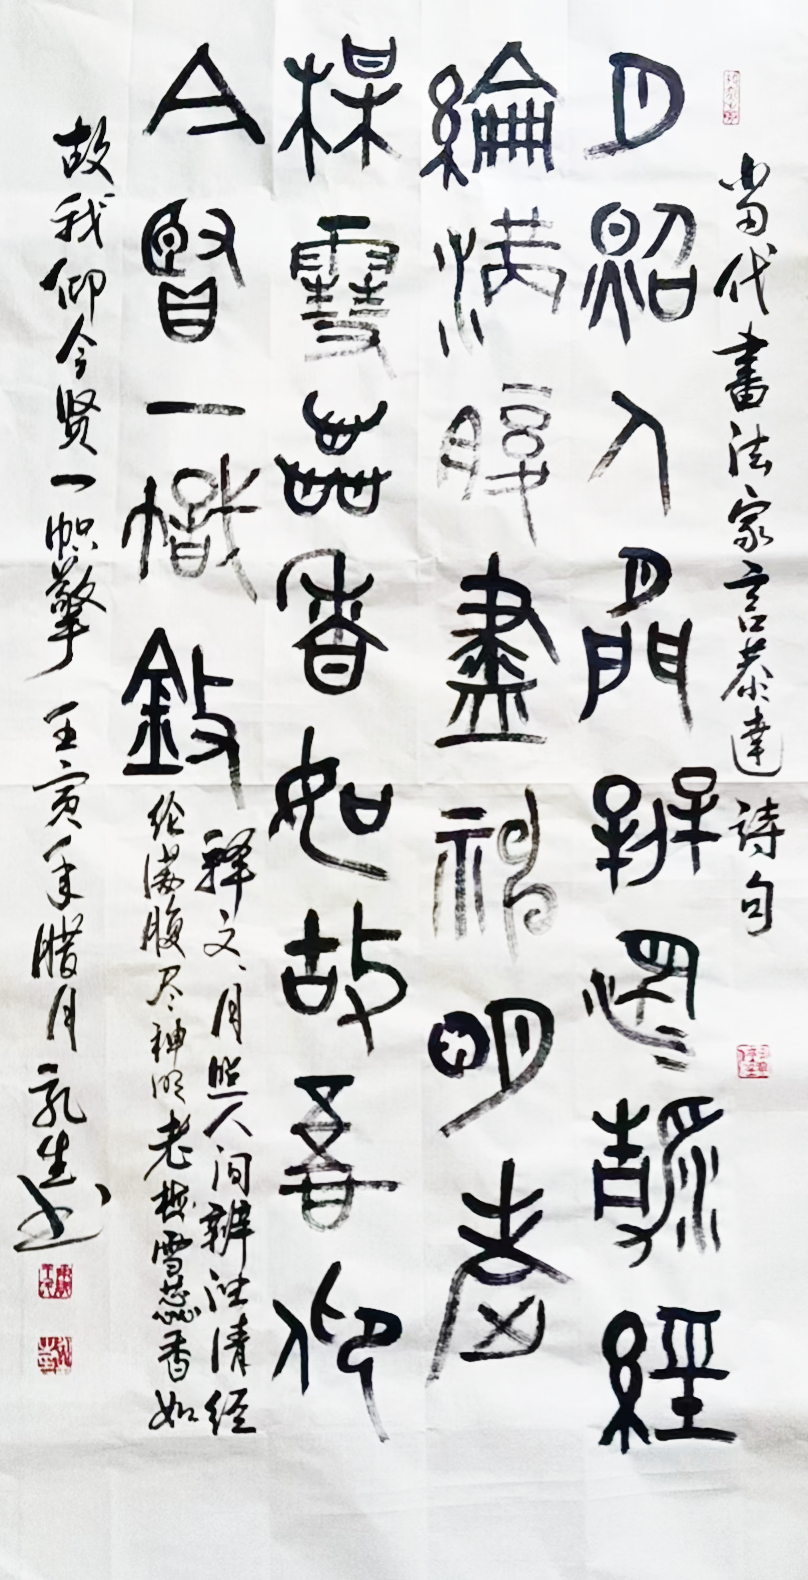 当代書法家言恭達詩句
月照人間辨浊清經
綸满腹盡神明老
楳雪蕊香如故吾仰
今賢一幟擎
释文、月照人间辨浊清经
纶满腹尽神明老梅雪蕊香如
故我仰今贤一帜擎 壬寅年腊月 生书